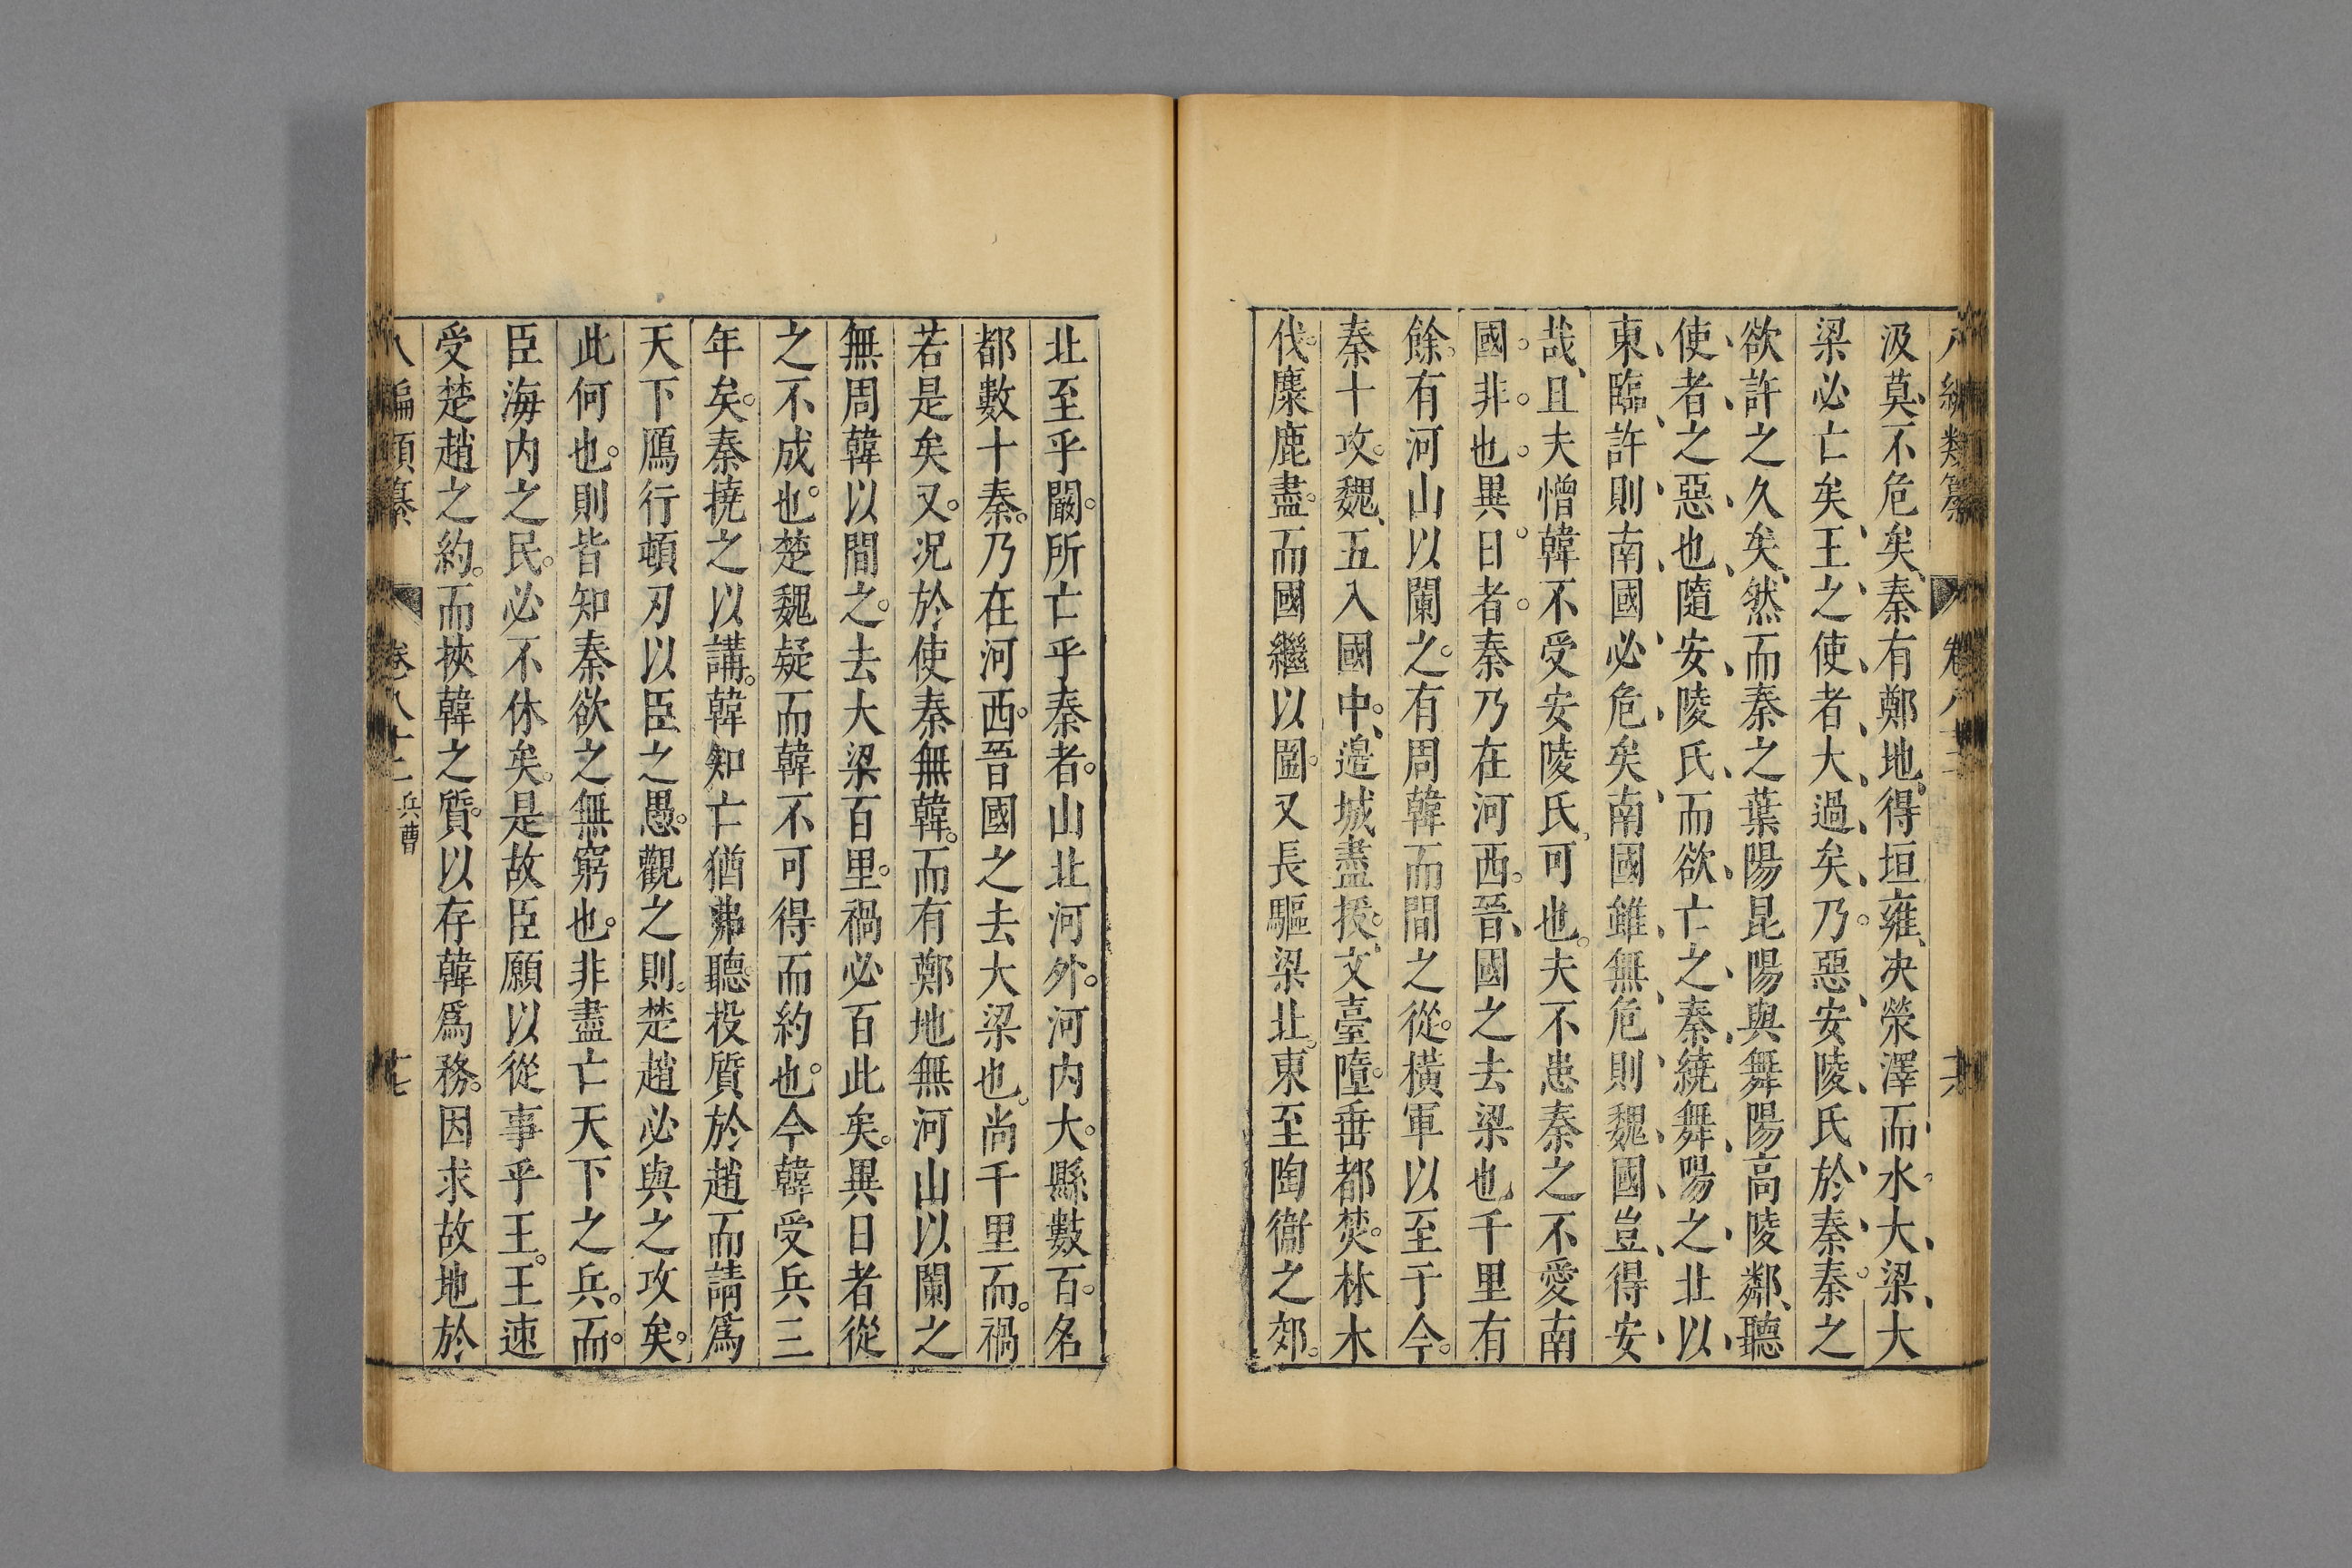 八編類纂 卷八十二 十六
汲莫不危矣秦有鄭地得垣雍决滎澤而水大梁大
梁必亡矣王之使者大過矣乃惡安陵氏於秦秦之
欲許之久矣然而秦之葉陽昆陽與舞陽高陵鄰聽
使者之惡也隨安陵氏而欲亡之秦繞舞陽之北以
東臨許則南國必危矣南國雖無危則魏國豈得安
哉且夫憎韓不受安陵氏可也夫不患秦之不愛南
國非也異日者秦乃在河西晉國之去梁也千里有
餘有河山以闌之有周韓而間之從橫軍以至于今
秦十攻魏五入國中邉城盡拔文臺墮垂都焚林木
伐麋鹿盡而國繼以圍又長驅梁北東至陶衛之郊
北至乎闞所亡乎秦者山北河外河内大縣數百名
都數十秦乃在河西晉國之去大梁也尚千里而禍
若是矣又况於使秦無韓而有鄭地無河山以闌之
無周韓以間之去大梁百里禍必百此矣異日者從
之不成也楚魏疑而韓不可得而約也今韓受兵三
年矣秦撓之以講韓知亡猶弗聽投質於趙而請爲
天下鴈行頓刃以臣之愚觀之則楚趙必與之攻矣
此何也則皆知秦欲之無窮也非盡亡天下之兵而
臣海内之民必不休矣是故臣願以從事乎王王速
受楚趙之約而挾韓之質以存韓爲務因求故地於
八編類纂 卷八十二 兵曹 十七